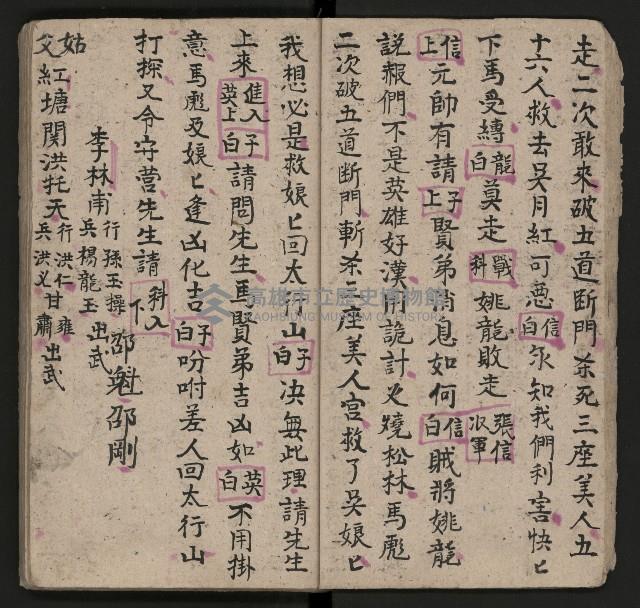 走二次敢來破五道断門杀死三座美人五
十六人救去吳月紅可惡信白氷知我們利害快匕
下馬受縛龍白莫走戰科姚龍敗走張信収軍
信上元帥有請子上賢弟消息如何信白賊將姚龍
説報們不是英雄好漢用詭計火燒松林馬彪
二次破五道断門斬杀三座美人宮救了吳娘匕
我想必是救娘匕回太行山子白决無此理請先生
上來進入英上子白請問先生馬賢弟吉凶如英白不用掛
意馬彪及娘匕逢凶化吉子白吩咐差人回太行山
打探又令守营先生請科入下邵魁邵剛
李林甫行孫玉操兵楊龍玉出武
姑父紅塘関洪托天行洪仁兵洪义甘雍肅出武
高雄市立歷史博物館
KAOHSIUNG MUSEUM OF HISTORY